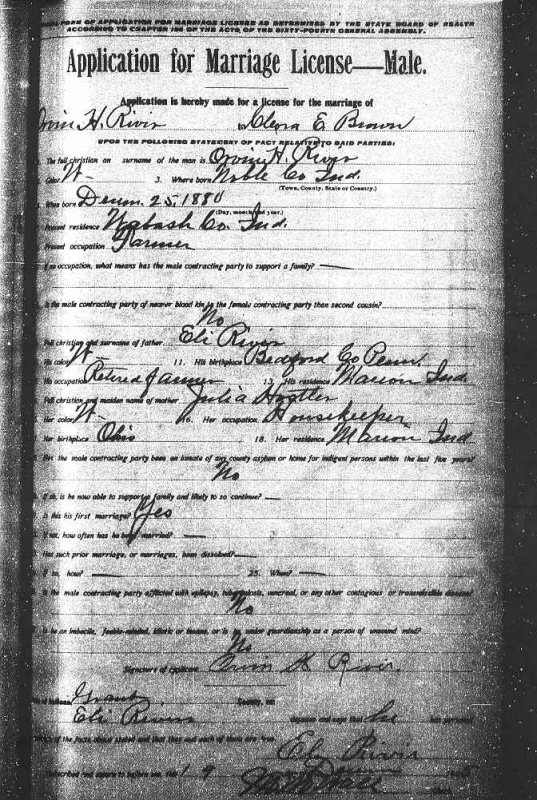 FORM OF APPLICATION FOR MARRIAGE LICENSE AS DETERMINED BY THE STATE BOARD OF HEALTH
ACCORDING TO CHAPTER 126 OF THE ACTS OF THE SIXTY-FOURTH GENERAL ASSEMBLY.
Application for Marriage License—Male.
Application is hereby made for a license for the marriage of
Orvin H. River Cleora E. Brown
UPON THE FOLLOWING STATEMENT OF FACT RELATIVE TO SAID PARTIES:
The full christian an surname of the man is Orvin H. River
Color W- 3. Where born Noble Co Ind.
(Town, County, State or Country.)
When born Decem. 25. 1880
(Day, month and year.)
Present residence Wabash Co. Ind.
Present occupation Farmer
If no occupation, what means has the male contracting party to support a family? —
Is the male contracting party of nearer blood kin to the female contracting party than second cousin?
No
Full christian and surname of father Eli River
His color W- 11. His birthplace Bedford Co Penn.
His occupation Retired farmer 13. His residence Marion Ind.
Full christian and maiden name of mother Julia
Her color W- 16. Her occupation Housekeeper
Her birthplace Ohio 18. Her residence Marion Ind
Has the male contracting party been an inmate of any county asylum or home for indigent persons within the last five years?
No
If so, is he now able to support a family and likely to so continue? —
Is this his first marriage? Yes
If not, how often has he been married? —
Has such prior marriage, or marriages, been dissolved? —
If so, how? — 25. When? —
Is the male contracting party afflicted with epilepsy, tuberculosis, venereal, or any other contagious or transmissible disease?
No
Is he an imbecile, feeble-minded, idiotic or insane, or is he under guardianship as a person of unsound mind?
No
Signature of applicant Orvin H River.
of Indiana, Grant County, ss:
Eli River deposes and says that he has personal
of the facts above stated and that they and each of them are true.
Eli River
Subscribed and sworn to before me, this 19